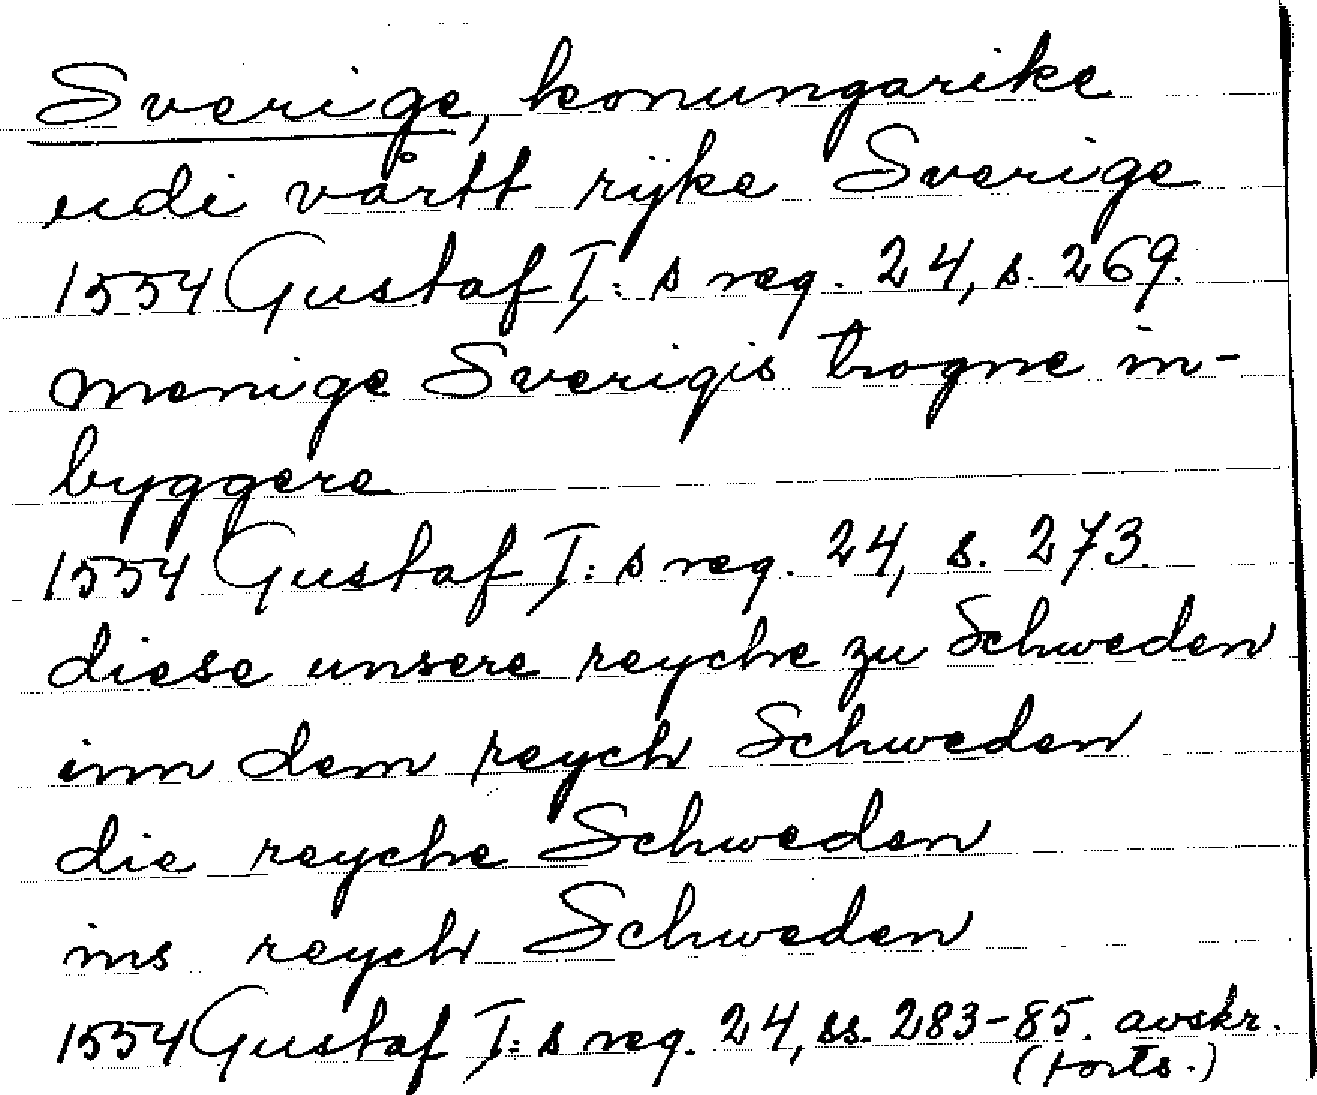 Sverige, konungarike
udi vårtt rijke Sverige
1554 Gustaf I:s reg. 24, s. 269.
menige Sverigis trogne in-
byggere
1554 Gustaf I:s reg. 24, s. 273.
diese unsere reyche zu Schweden
inn dem reych Schweden
die reyche Schweden
ins reych Schweden
1554 Gustaf I:s reg. 24, ss. 283-85. avskr.
(forts.)